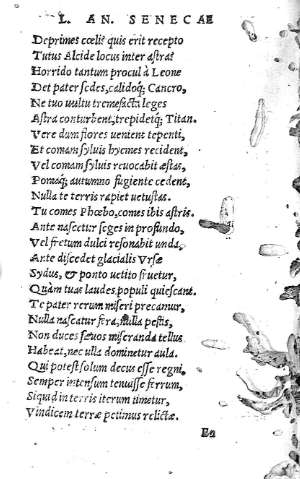 L. AN. SENECAE
Deprimes cœli? quis erit recepto
Tutus Alcide locus inter astra?
Horrido tantum procul à Leone
Det pater sedes, calidoq; Cancro,
Ne tuo uultu tremefacta leges
Astra conturbent, trepidetq; Titan.
Vere dum flores uenient tepenti,
Et comam syluis hyemes recident,
Vel comam syluis reuocabit æstas,
Pomaq; autumno fugiente cedent,
Nulla te terris rapiet uetustas.
Tu comes Phœbo, comes ibis astris.
Ante nascetur seges in profundo,
Vel fretum dulci resonabit unda,
Ante discedet glacialis Vrsæ
Sydus, & ponto uetito fruetur,
Quàm tuas laudes populi quiescant.
Te pater rerum miseri precamur,
Nulla nascatur fera, nulla pestis,
Non duces sæuos miseranda tellus
Habeat, nec ulla dominetur aula.
Qui potest solum decus esse regni,
Semper intensum tenuisse ferrum,
Siquid in terris iterum timetur,
Vindicem terræ petimus relictæ.